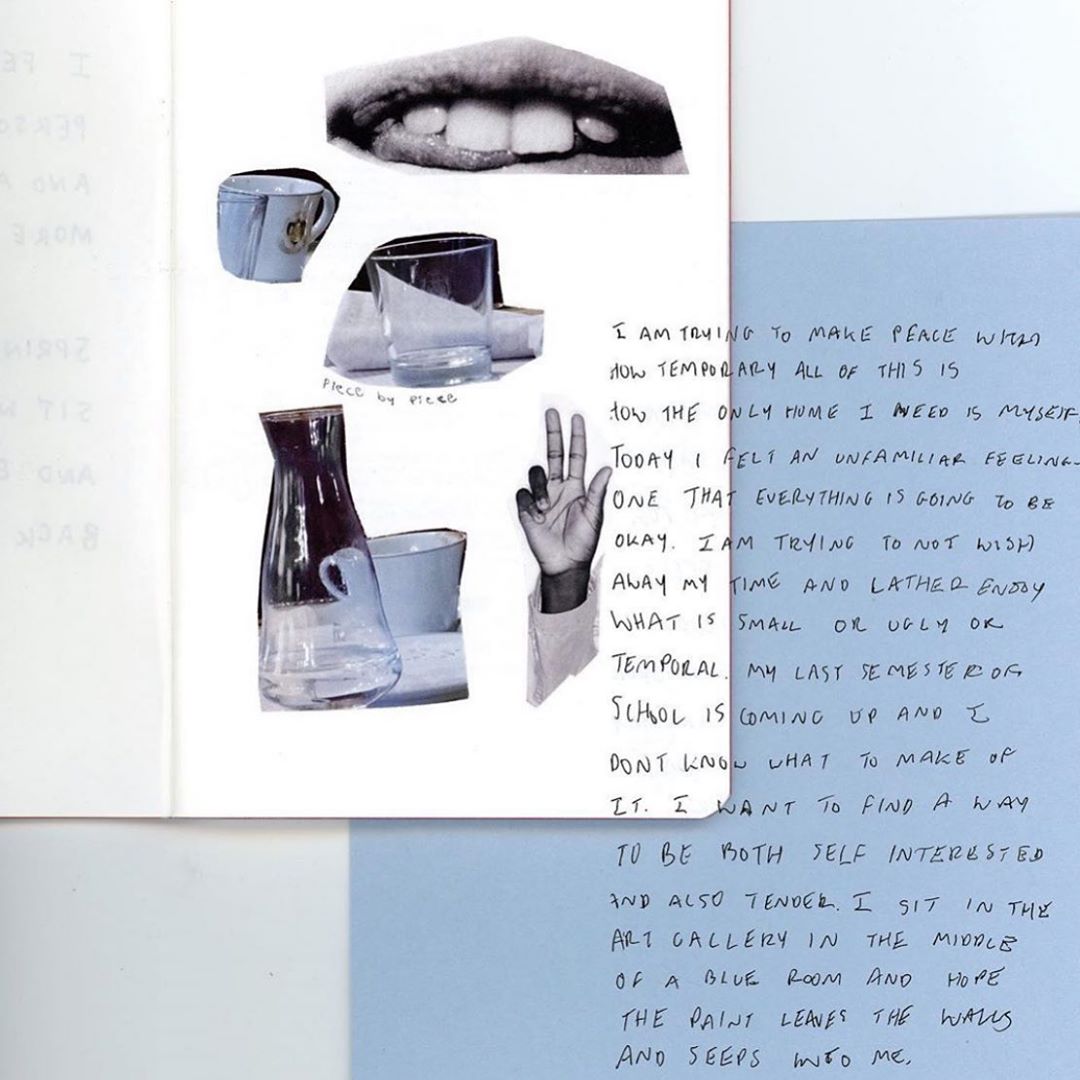 piece by piece
I AM TRYING TO MAKE PEACE WITH
HOW TEMPORARY ALL OF THIS IS
HOW THE ONLY HOME I NEED IS MYSELF.
TODAY I FELT AN UNFAMILIAR FEELING
ONE THAT EVERYTHING IS GOING TO BE
OKAY. I AM TRYING TO NOT WISH
AWAY MY TIME AND RATHER ENJOY
WHAT IS SMALL OR UGLY OR
TEMPORAL. MY LAST SEMESTER OF
SCHOOL IS COMING UP AND I
DONT KNOW WHAT TO MAKE OF
IT. I WANT TO FIND A WAY
TO BE BOTH SELF INTERESTED
AND ALSO TENDER. I SIT IN THE
ART GALLERY IN THE MIDDLE
OF A BLUE ROOM AND HOPE
THE PAINT LEAVES THE WALLS
AND SEEPS INTO ME.